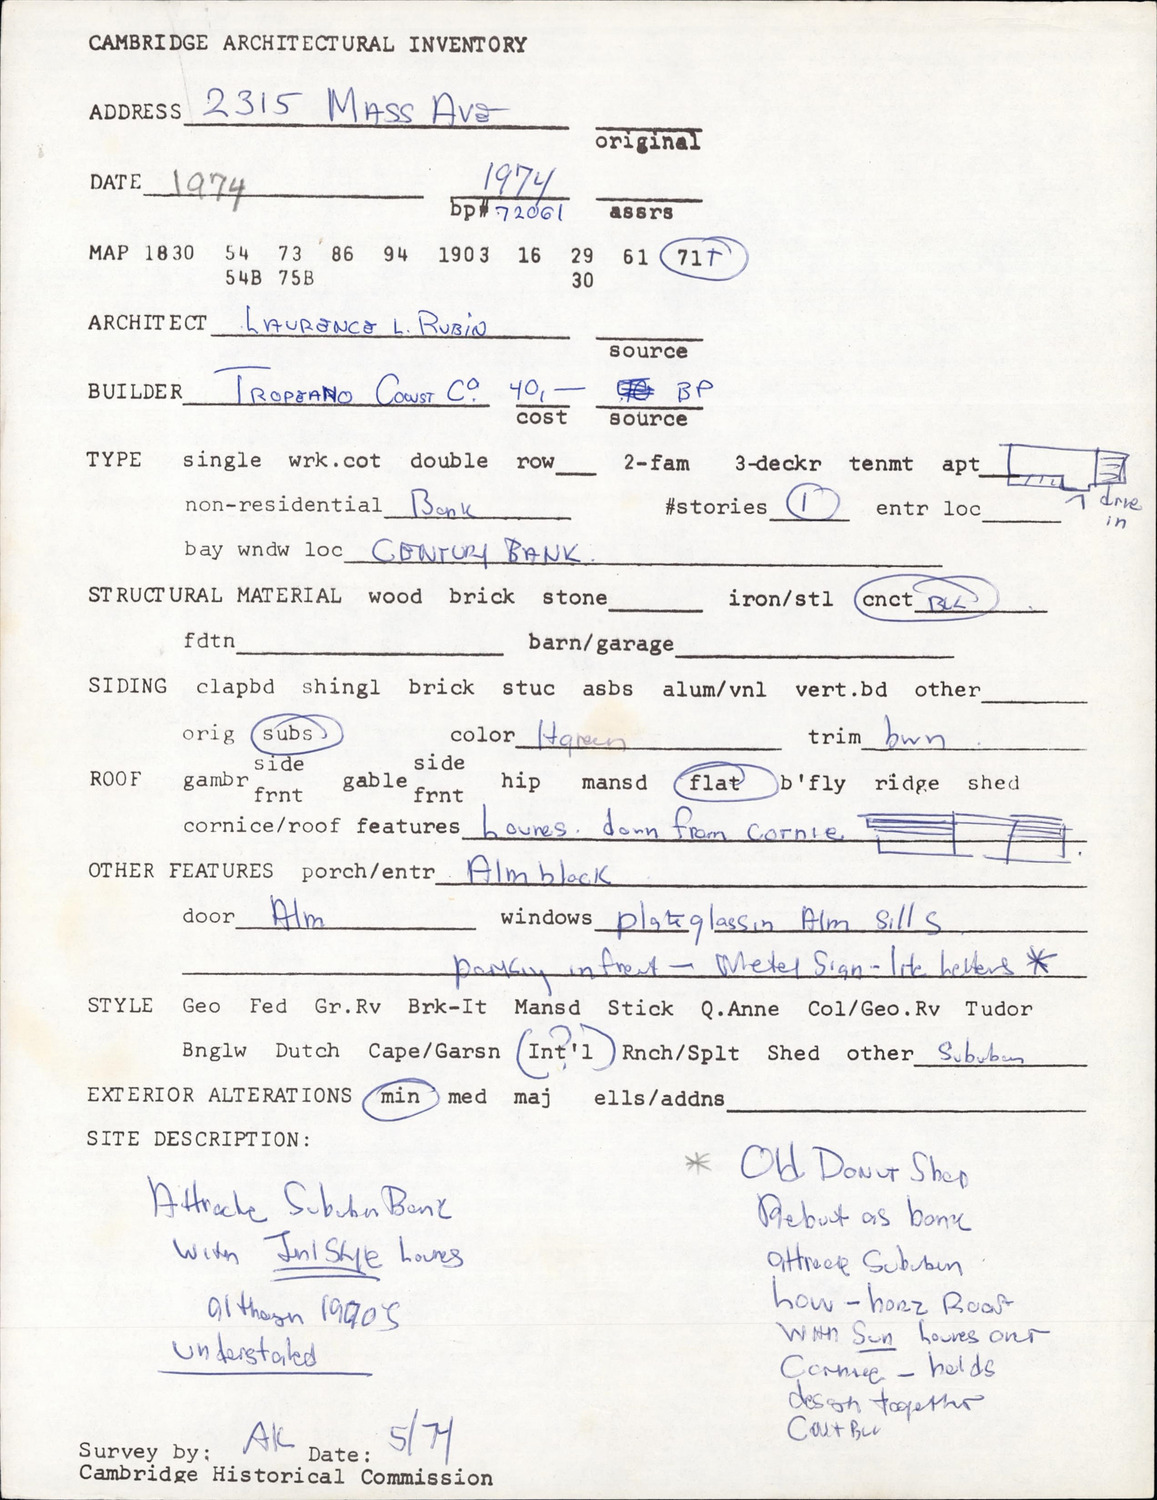 CAMBRIDGE ARCHITECTURAL INVENTORY
ADDRESS 2315 MASS AVE
original
DATE 1974 1974
bp# 72061 assrs
MAP 1830 54 73 86 94 1903 16 29 61 71+
54B 75B 30
ARCHITECT LAURENCE L. RUBIN
source
BUILDER TROPEANO CONST CO. 40,— BP
cost source
TYPE single wrk.cot double row 2-fam 3-deckr tenmt apt
non-residential Bank #stories 1 entr loc drve
in
bay wndw loc CENTURY BANK.
STRUCTURAL MATERIAL wood brick stone iron/stl cnct BLK
fdtn barn/garage
SIDING clapbd shingl brick stuc asbs alum/vnl vert.bd other
orig subs color ltgreen trim bwn
side side
ROOF gambr gable hip mansd flat b'fly ridge shed
frnt frnt
cornice/roof features louves. down from cornie
OTHER FEATURES porch/entr Alm block
door Alm windows plateglass in Alm Sills
in front — Metal Sign - *
STYLE Geo Fed Gr.Rv Brk-It Mansd Stick Q.Anne Col/Geo.Rv Tudor
Bnglw Dutch Cape/Garsn (Int'l)? Rnch/Splt Shed other Suburban
EXTERIOR ALTERATIONS min med maj ells/addns
SITE DESCRIPTION:
* Old DONUT Shop
Suburban Bank
Rebuilt as bank
with Intl Style louves
Suburban
although 1970s
Low - horz Roof
understated
with Sun louves over
Cornice - holds
design together
Survey by: AK Date: 5/74
Cambridge Historical Commission